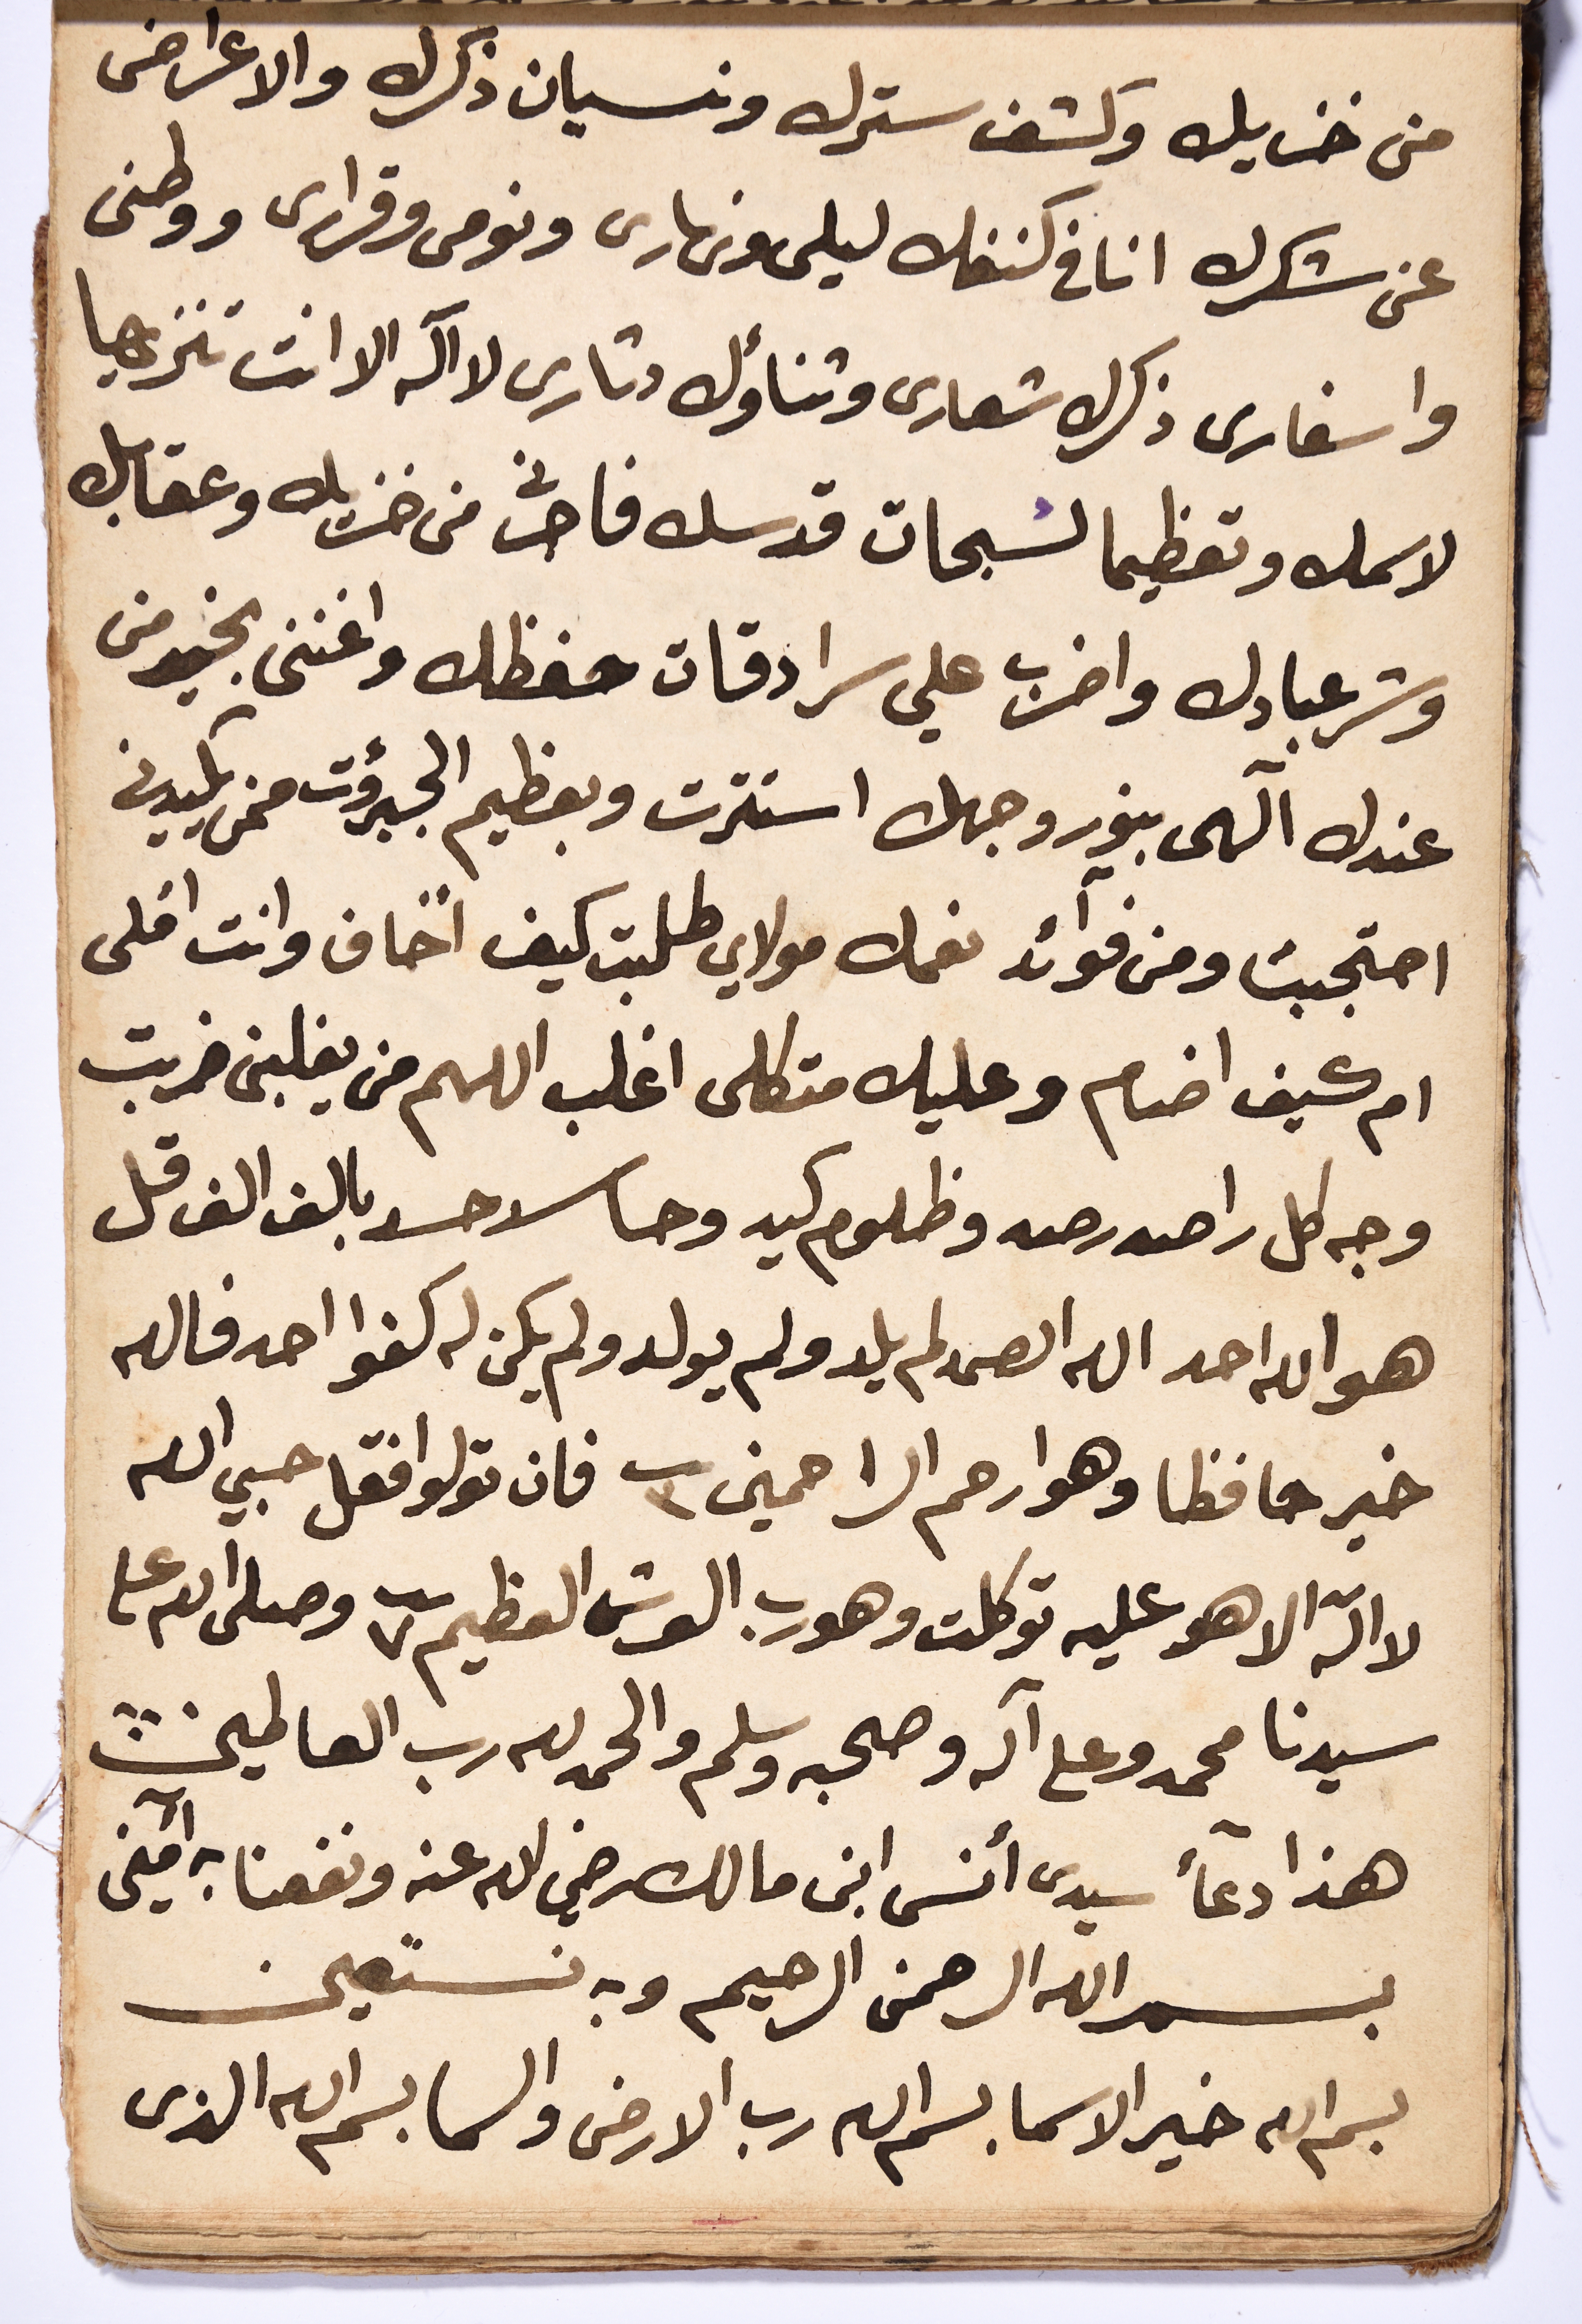 من خزيك وكشف سترك ونسيان ذكرك والاعراض
عن شكرك انا في كنفك ليلى ونهارى ونومى وقرارى ووطنى
واسفارى ذكرك شعارى وثناؤك دثارى لا اله الا انت تنزيها
لاسمك وتعظيما لسبحات قدسك فاجرنى من خزيك وعقابك
وشر عبادك واضرب علي سرادقات حفظك واغننى بخير من
عندك آلهى بنور وجهك استترت وبعظيم الجبروت ممن يكيدنى
احتجبت ومن فوآئد نعمك مولاي طلبت كيف اخاف وانت املى
ام كيف اضام وعليك متكلى اغلب اللهم من يغلبنى ضربت
وجه كل راصد رصد وظلوم كيد وحاسد حسد بالف الف قل
هو الله احد الله الصمد لم يلد ولم يولد ولم يكن له كفوا احد فالله
خير حافظا وهو ارحم الراحمين ٣ فان تولوا فقل حسبي الله
لا اله الا هو عليه توكلت وهو رب العرش العظيم ٧ وصلى الله على
سيدنا محمد وعلى آله وصحبه وسلم والحمد لله رب العالمين
هذا دعآء سيدى أنس ابن مالك رضي الله عنه ونفعنا به آمين
بسم الله الرحمن الرحيم وبه نستعين
بسم الله خير الاسما بسم الله رب الارض والسما بسم الله الذى